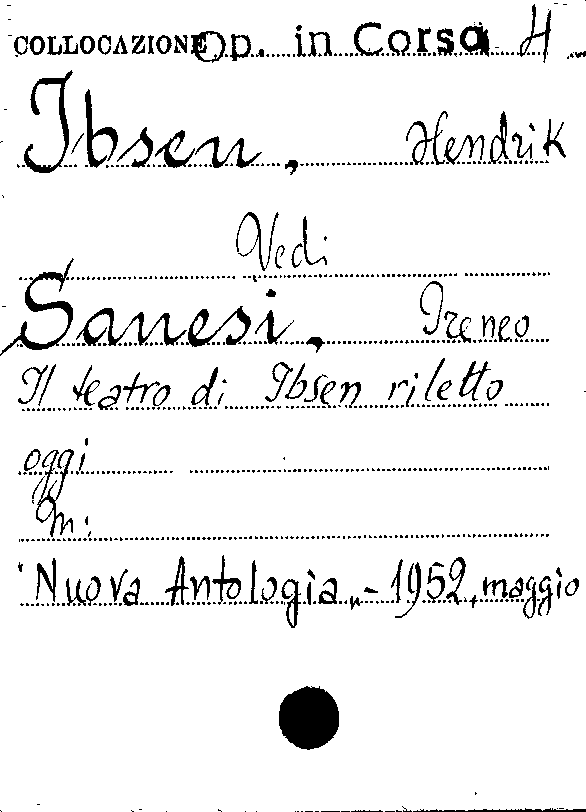 COLLOCAZIONE Op. in Corso H
Ibsen, Hendrik
Vedi
Sanesi, Ireneo
Il teatro di Ibsen riletto
oggi
In:
"Nuova Antologia„ - 1952, maggio